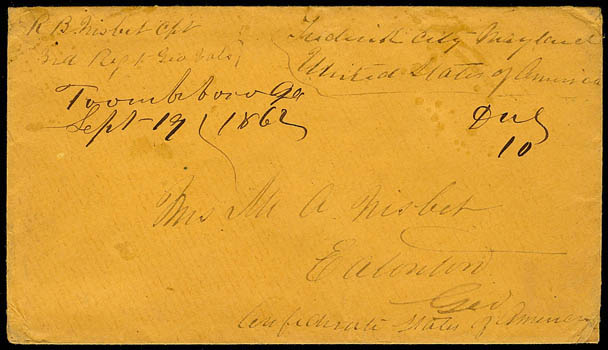 R B Nisbet Cpt
3rd Regt Geo Vols
Frederick City Maryland
United States of America
Toombsboro Ga
Sept 19 1862
Due
10
Mrs M A Nisbet
Eatonton
Geo
Confederate States of America